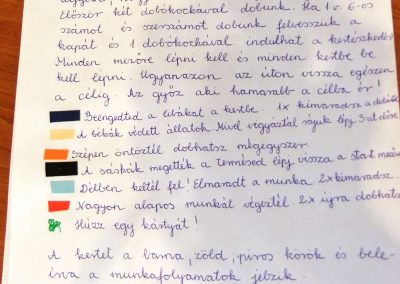 Először két dobókockával dobunk. Ha 1 v 6-os
számot és szerszámot dobunk felvesszük a
kapát és 1 dobókockával indulhat a kertészkedés!
Minden mezőre lépni kell és minden kertbe be
kell lépni. Ugyanazon az úton vissza egészen
a célig. Az győz aki hamarabb a célba ér!
Beengedted a libákat a kertbe. 1x kimaradsz a
A békák védett állatok. Mivel vigyáztál rájuk lépj 3-at előre
Szépen öntöztél dobhatsz mégegyszer.
A sáskák megették a termésed lépj vissza a start mező
Délben keltél fel! Elmaradt a munka 2x kimaradsz.
Nagyon alapos munkát végeztél 2x újra dobhatsz
Húzz egy kártyát!
A kertet a barna, zöld, piros körök és bele-
írva a munkafolyamatok jelzik.